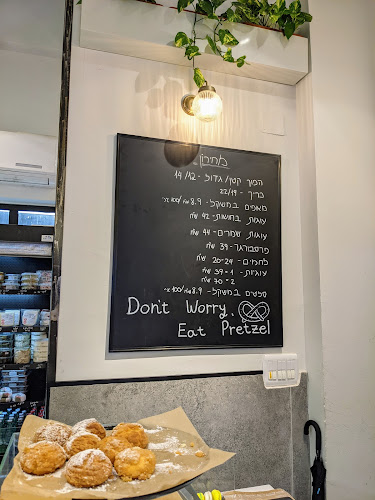 מחירון
הפוך קטן/גדול - 14/12
כריך - 22/19
מאפים במשקל - 8.9 ש״ח/100 גר׳
עוגות בחושות - 42 ש״ח
עוגות שמרים - 44 ש״ח
פרסבורגר - 39 ש״ח
לחמים - 20-24 ש״ח
עוגיות - 1 - 39 ש״ח
2 - 70 ש״ח
סלטים במשקל - 8.9 ש״ח/100 גר׳
Don't Worry,
Eat Pretzel